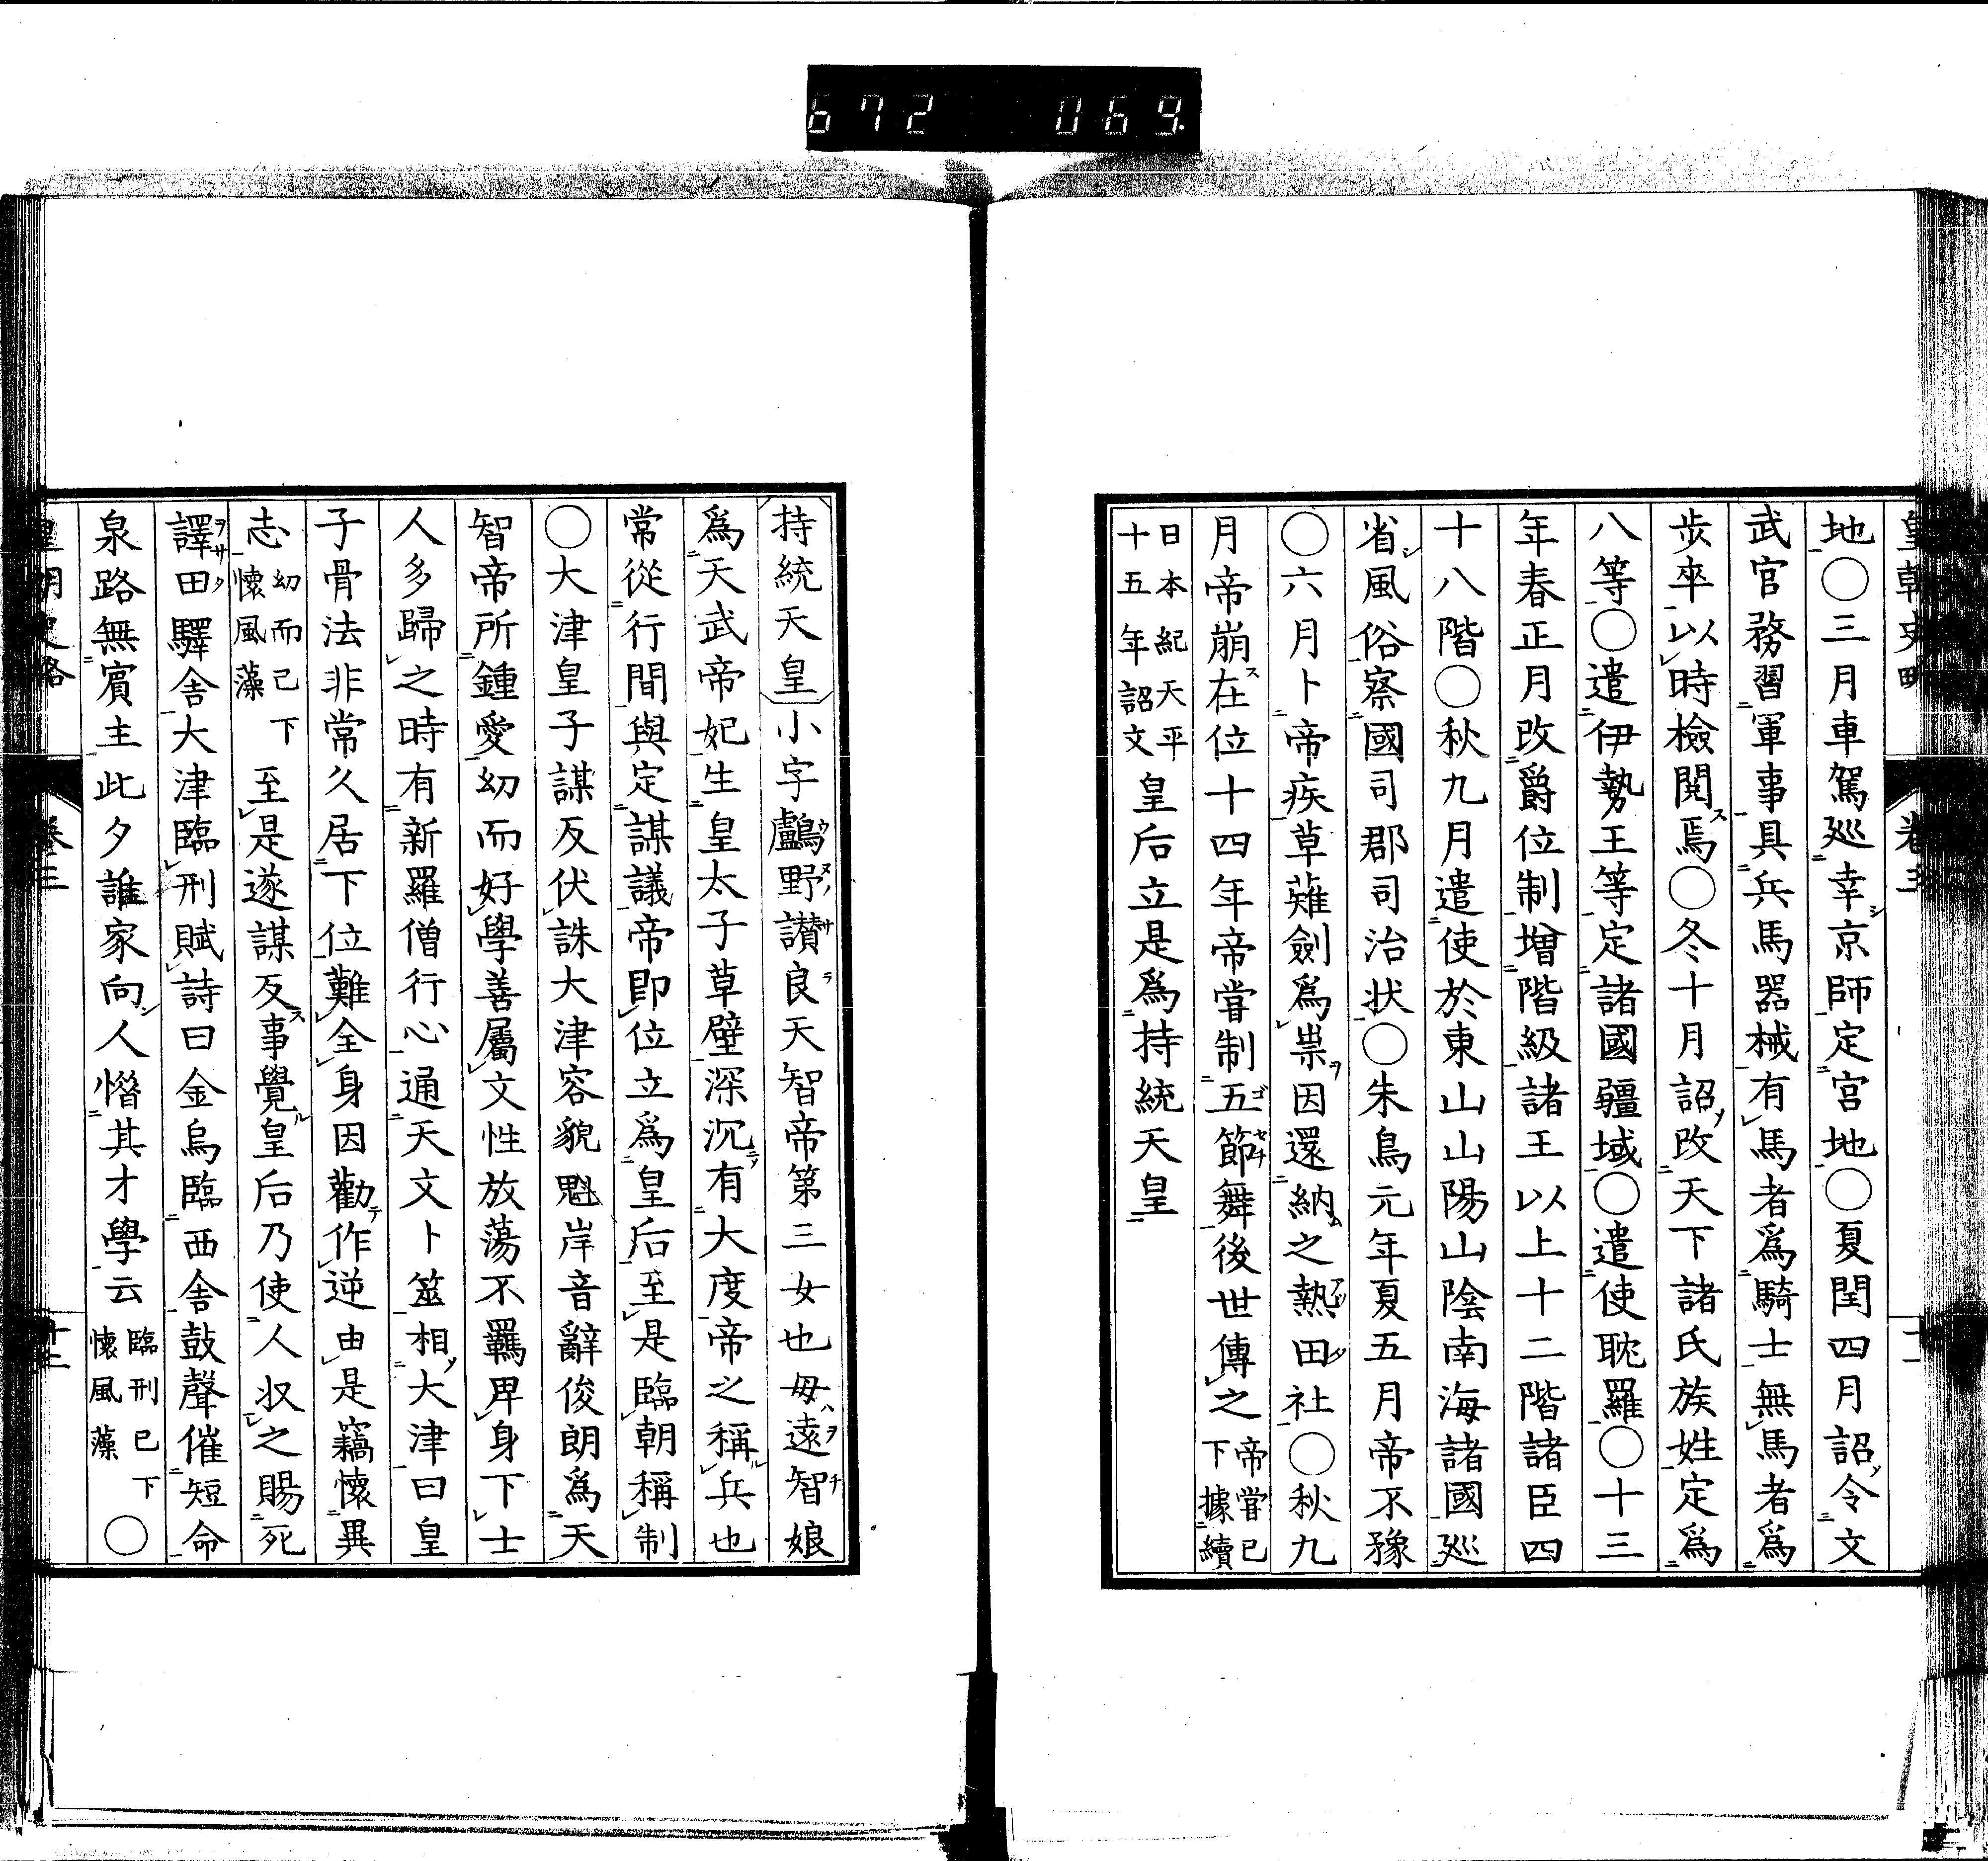 672 069.
皇朝史略 卷三 十一
地〇三月車駕巡幸京師定宮地〇夏閏四月詔令文
武官務習軍事具兵馬器械有馬者爲騎士無馬者爲
步卒以時檢閱焉〇冬十月詔改天下諸氏族姓定爲
八等〇遣伊勢王等定諸國疆域〇遣使耽羅〇十三
年春正月改爵位制增階級諸王以上十二階諸臣四
十八階〇秋九月遣使於東山山陽山陰南海諸國巡
省風俗察國司郡司治狀〇朱鳥元年夏五月帝不豫
〇六月卜帝疾草薙劍爲祟因還納之熱田社〇秋九
月帝崩在位十四年帝嘗制五節舞後世傳之帝嘗已下據續
日本紀天平十五年詔文皇后立是爲持統天皇
持統天皇小字鸕野讃良天智帝第三女也母遠智娘
爲天武帝妃生皇太子草壁深沉有大度帝之稱兵也
常從行間與定謀議帝卽位立爲皇后至是臨朝稱制
〇大津皇子謀反伏誅大津容貌魁岸音辭俊朗爲天
智帝所鍾愛幼而好學善屬文性放蕩不羈畀身下士
人多歸之時有新羅僧行心通天文卜筮相大津曰皇
子骨法非常久居下位難全身因勸作逆由是竊懷異
志幼而已下懷風藻至是遂謀反事覺皇后乃使人収之賜死
譯田驛舎大津臨刑賦詩曰金烏臨西舎鼓聲催短命
泉路無賓主此夕誰家向人惜其才學云臨刑已下懷風藻〇
皇朝史略 卷三 十二